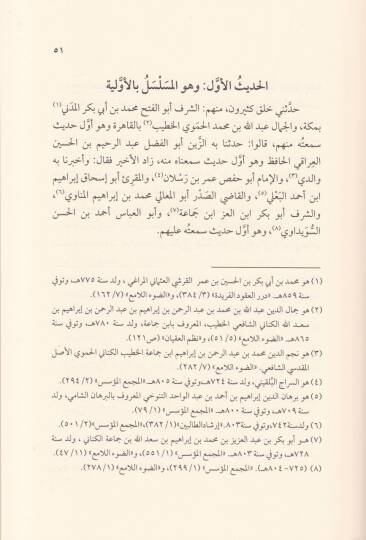 ٥١
الحديثُ الأوَّل: وهو المسَلْسَلُ بالأوَّلية
حدَّثني خلق كثيرون، منهم: الشرف أبو الفتح محمد بن أبي بكر المدَني(١)
بمكة، والجمال عبد الله بن محمد الحمَوي الخطيب(٢) بالقاهرة وهو أوَّل حديث
سمعتُه منهم، قالوا: حدثنا به الزَّين أبو الفضل عبد الرحيم بن الحسين
العِراقي الحافظ وهو أوَّل حديث سمعناه منه، زاد الأخير فقال: وأخبرنا به
والدي(٣)، والإمام أبو حفص عمر بن رَسْلان(٤)، والمقرئ أبو إسحاق إبراهيم
ابن أحمد البَعْلي(٥)، والقاضي الصَّدْر أبو المعالي محمد بن إبراهيم المناوي(٦)،
والشرف أبو بكر ابن العز ابن جَماعة(٧)، وأبو العباس أحمد بن الحسن
السُّوَيداوي(٨)، وهو أوَّل حديث سمعتُه عليهم.
(١) هو محمد بن أبي بكر بن الحسين بن عمر القرشي العثماني المراغي، ولد سنة ٧٧٥هـ، وتوفي
سنة ٨٥٩هـ. «درر العقود الفريدة» (٣/ ٣٨٤)، و«الضوء اللامع» (٧/ ١٦٢).
(٢) هو جمال الدين عبد الله بن محمد بن عبد الرحمن بن إبراهيم بن عبد الرحمن بن إبراهيم بن
سعد الله الكناني الشافعي الخطيب، المعروف بابن جماعة، ولد سنة ٧٨٠هـ، وتوفي سنة
٨٦٥هـ. «الضوء اللامع» (٥/ ٥١) و«نظم العقيان» (ص١٢١).
(٣) هو نجم الدين محمد بن عبد الرحمن بن إبراهيم ابن جماعة الخطيب الكناني الحموي الأصل
المقدسي الشافعي. «الضوء اللامع» (٧/ ٢٨٢).
(٤) هو السراج البُلْقيني، ولد سنة ٧٢٤هـ، وتوفي سنة ٨٠٥هـ. «المجمع المؤسس» (٢/ ٢٩٤).
(٥) هو برهان الدين إبراهيم بن أحمد بن عبد الواحد التنوخي المعروف بالبرهان الشامي، ولد
سنة ٧٠٩هـ، وتوفي سنة ٨٠٠هـ. «المجمع المؤسس» (١/ ٧٩).
(٦) ولد سنة ٧٤٢، وتوفي سنة ٨٠٣. «إرشاد الطالبين» (١/ ٣٨٢)، «المجمع المؤسس» (٢/ ٥٠١).
(٧) هـو أبو بكر بن عبد العزيز بن محمد بن إبراهيم بن سعد الله بن جماعة الكناني، ولد سنة
٧٢٨هـ، وتوفي سنة ٨٠٣هـ. «المجمع المؤسس» (١/ ٥٥١)، و«الضوء اللامع» (١١/ ٤٧).
(٨) (٧٢٥- ٨٠٤هـ). «المجمع المؤسس» (١/ ٢٩٩)، و«الضوء اللامع» (١/ ٢٧٨).